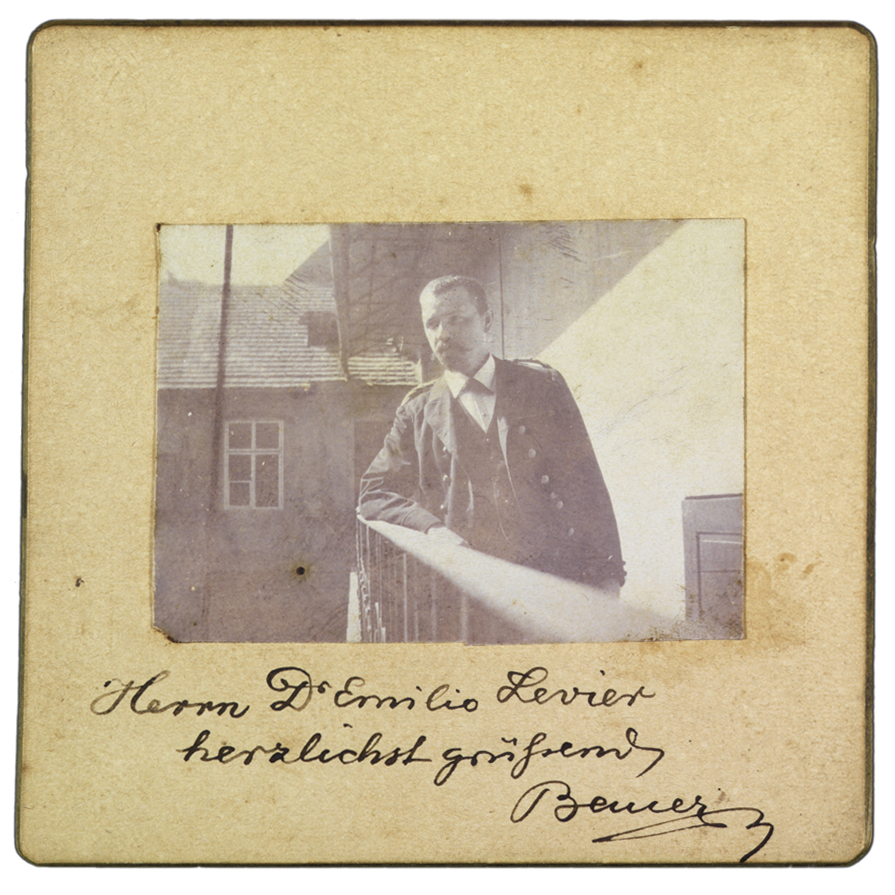 Herrn Dr Emilio Levier
herzlichst grüßend